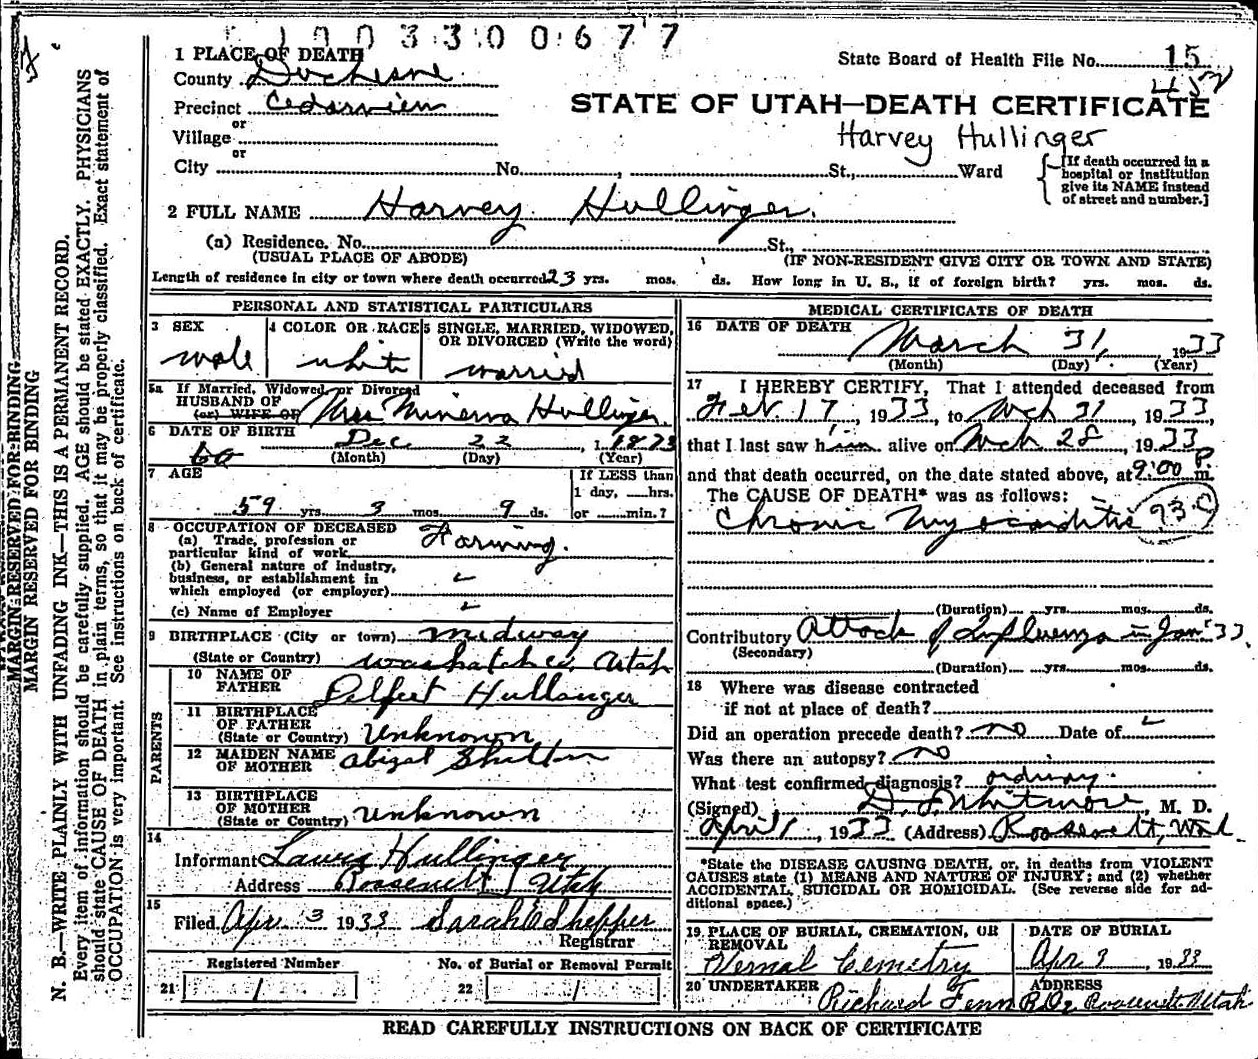 1003300677
1 PLACE OF DEATH
State Board of Health File No. 15
County Duchesne
452
Precinct Cedarview
STATE OF UTAH—DEATH CERTIFICATE
or
Village
Harvey Hullinger
or
City No. , St., Ward
[If death occurred in a hospital or institution give its NAME instead of street and number.]
2 FULL NAME Harvey Hullinger.
(a) Residence. No. St.,
(USUAL PLACE OF ABODE) (IF NON-RESIDENT GIVE CITY OR TOWN AND STATE)
Length of residence in city or town where death occurred 23 yrs. mos. ds. How long in U. S., if of foreign birth? yrs. mos. ds.
PERSONAL AND STATISTICAL PARTICULARS
3 SEX
male
4 COLOR OR RACE
white
5 SINGLE, MARRIED, WIDOWED, OR DIVORCED (Write the word)
married
5a If Married, Widowed or Divorced
HUSBAND OF
(or) WIFE OF Mrs Minerva Hullinger
6 DATE OF BIRTH Dec 22 1873
60 (Month) (Day) (Year)
7 AGE
59 yrs 3 mos. 9 ds.
If LESS than
1 day, hrs.
or min.?
8 OCCUPATION OF DECEASED
(a) Trade, profession or
particular kind of work Farming.
(b) General nature of industry,
business, or establishment in
which employed (or employer)
(c) Name of Employer
9 BIRTHPLACE (City or town) Midway
(State or Country) Washatch co, Utah
PARENTS
10 NAME OF
FATHER Hullanger
11 BIRTHPLACE
OF FATHER
(State or Country) Unknown
12 MAIDEN NAME
OF MOTHER Abigal
13 BIRTHPLACE
OF MOTHER
(State or Country) Unknown
14
Informant Hullinger
Address Roosevelt, Utah
15
Filed Apr 3 1933 Sarah E Shepper
Registrar
Registered Number
21
No. of Burial or Removal Permit
22
MEDICAL CERTIFICATE OF DEATH
16 DATE OF DEATH
March 31, 1933
(Month) (Day) (Year)
17 I HEREBY CERTIFY, That I attended deceased from
Feb 17, 1933, to Mch 31, 1933,
that I last saw him alive on Mch 28, 1933
and that death occurred, on the date stated above, at 9:00 P m.
The CAUSE OF DEATH* was as follows:
Chronic Myocarditis 93-C
(Duration) yrs. mos. ds.
Contributory Attack of Influenza in Jan '33
(Secondary)
(Duration) yrs. mos. ds.
18 Where was disease contracted
if not at place of death?
Did an operation precede death? no Date of
Was there an autopsy? no
What test confirmed diagnosis? ordinary.
(Signed) Whitmore, M. D.
April 1, 1933 (Address) Roosevelt, Utah
*State the DISEASE CAUSING DEATH, or, in deaths from VIOLENT
CAUSES state (1) MEANS AND NATURE OF INJURY; and (2) whether
ACCIDENTAL, SUICIDAL OR HOMICIDAL. (See reverse side for ad-
ditional space.)
19 PLACE OF BURIAL, CREMATION, OR
REMOVAL
Vernal Cemetry
DATE OF BURIAL
Apr 3, 1933
20 UNDERTAKER
Richard Fenn
ADDRESS
Roosevelt Utah
READ CAREFULLY INSTRUCTIONS ON BACK OF CERTIFICATE
MARGIN RESERVED FOR BINDING
MARGIN RESERVED FOR BINDING
N. B.—WRITE PLAINLY WITH UNFADING INK—THIS IS A PERMANENT RECORD.
Every item of information should be carefully supplied. AGE should be stated EXACTLY. PHYSICIANS
should state CAUSE OF DEATH in plain terms, so that it may be properly classified. Exact statement of
OCCUPATION is very important. See instructions on back of certificate.